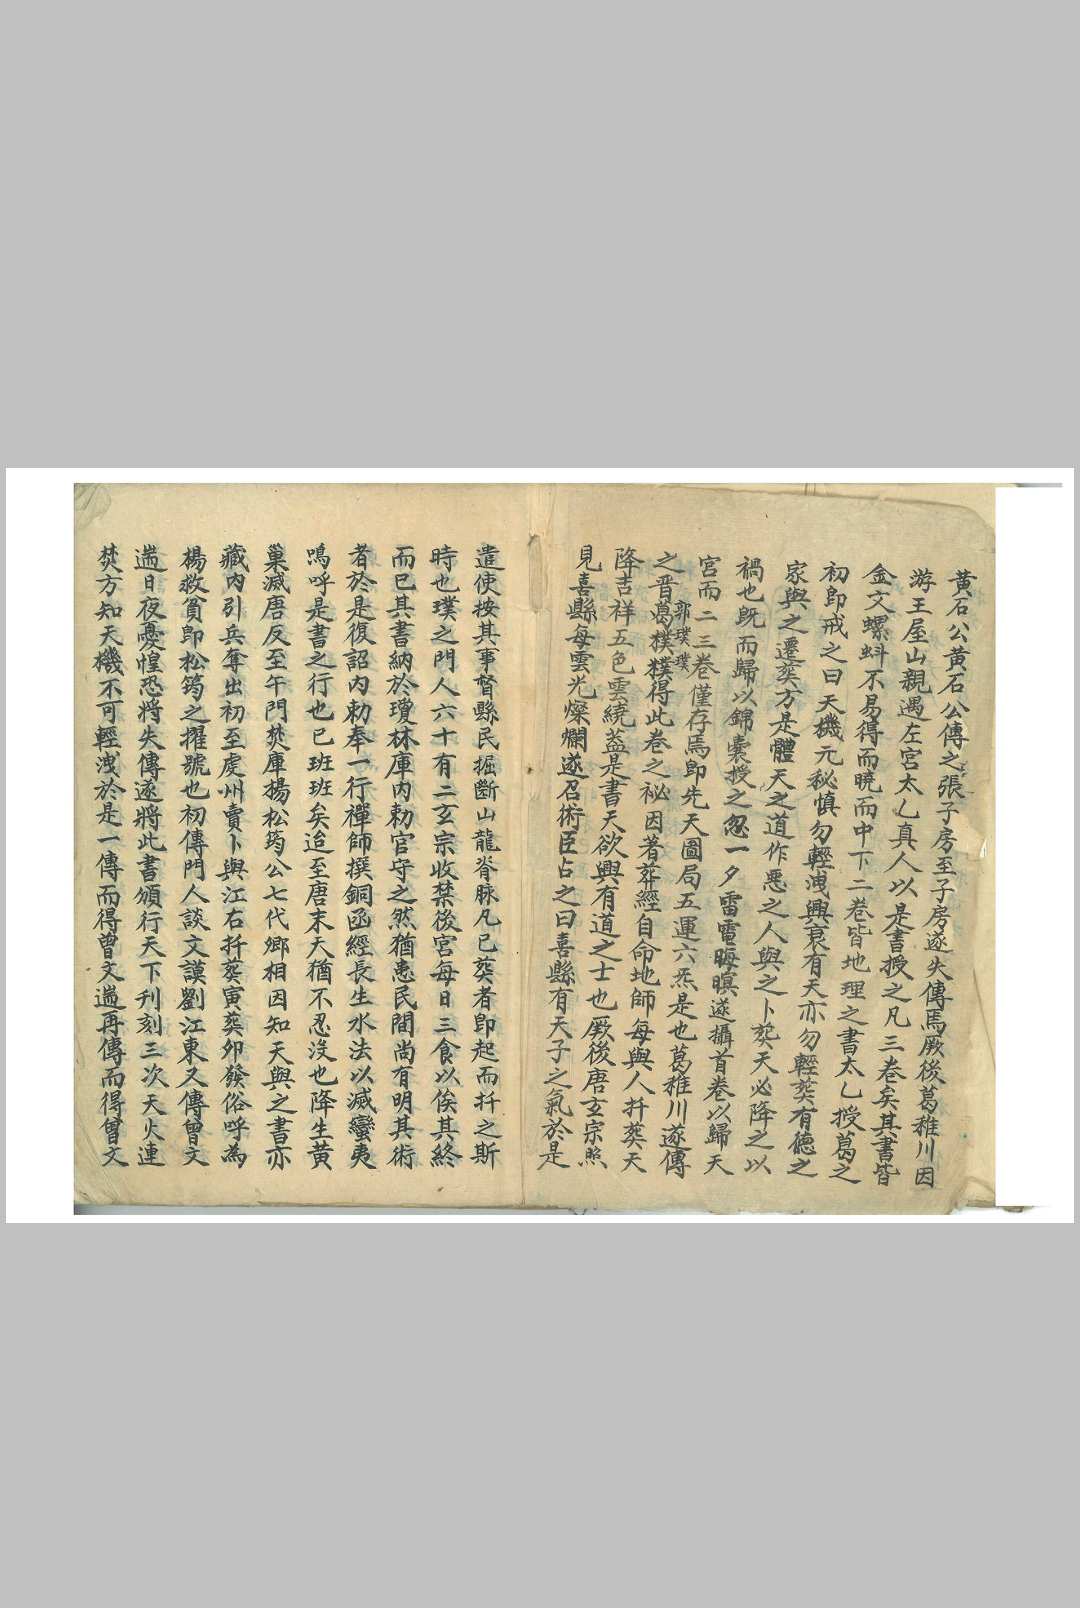 黃石公黃石公傳之張子房至子房遂失傳焉厥後葛稚川因
游王屋山親遇左宮太乙真人以是書授之凡三卷矣其書皆
金文螺蚪不易得而曉而中下二卷皆地理之書太乙授葛之
初即戒之曰天機元秘慎勿輕洩興衰有天亦勿輕葬有德之
家與之遷葬方是體天之道作惡之人與之卜葬天必降之以
禍也既而歸以錦囊授之忽一夕雷電晦暝遂攝首卷以歸天
宮而二三卷僅存焉即先天圖局五運六炁是也葛稚川遂傳
之晋葛樸
郭璞璞
樸得此卷之祕因著葬經自命地師每與人扦葬天
降吉祥五色雲繞蓋是書天欲興有道之士也厥後唐玄宗照
見喜縣每雲光燦爛遂召術臣占之曰喜縣有天子之氣於是
遣使按其事督縣民掘斷山龍脊脉凡已葬者即起而扦之斯
時也璞之門人六十有二玄宗收禁後宮每日三食以俟其終
而已其書納於瓊林庫內勅官守之然猶患民間尚有明其術
者於是復詔內勅奉一行禪師撰銅函經長生水法以滅蠻夷
嗚呼是書之行也已班班矣迨至唐末天猶不忍沒也降生黃
巢滅唐反至午門焚庫楊松筠公七代鄉相因知天與之書亦
藏內引兵奪出初至虔州賣卜與江右扦葬寅葬卯發俗呼為
楊救貧即松筠之擢號也初傳門人談文謨劉江東又傳曾文
遄日夜憂惶恐將失傳遂將此書頒行天下刊刻三次天火連
焚方知天機不可輕洩於是一傳而得曾文遄再傳而得曾文